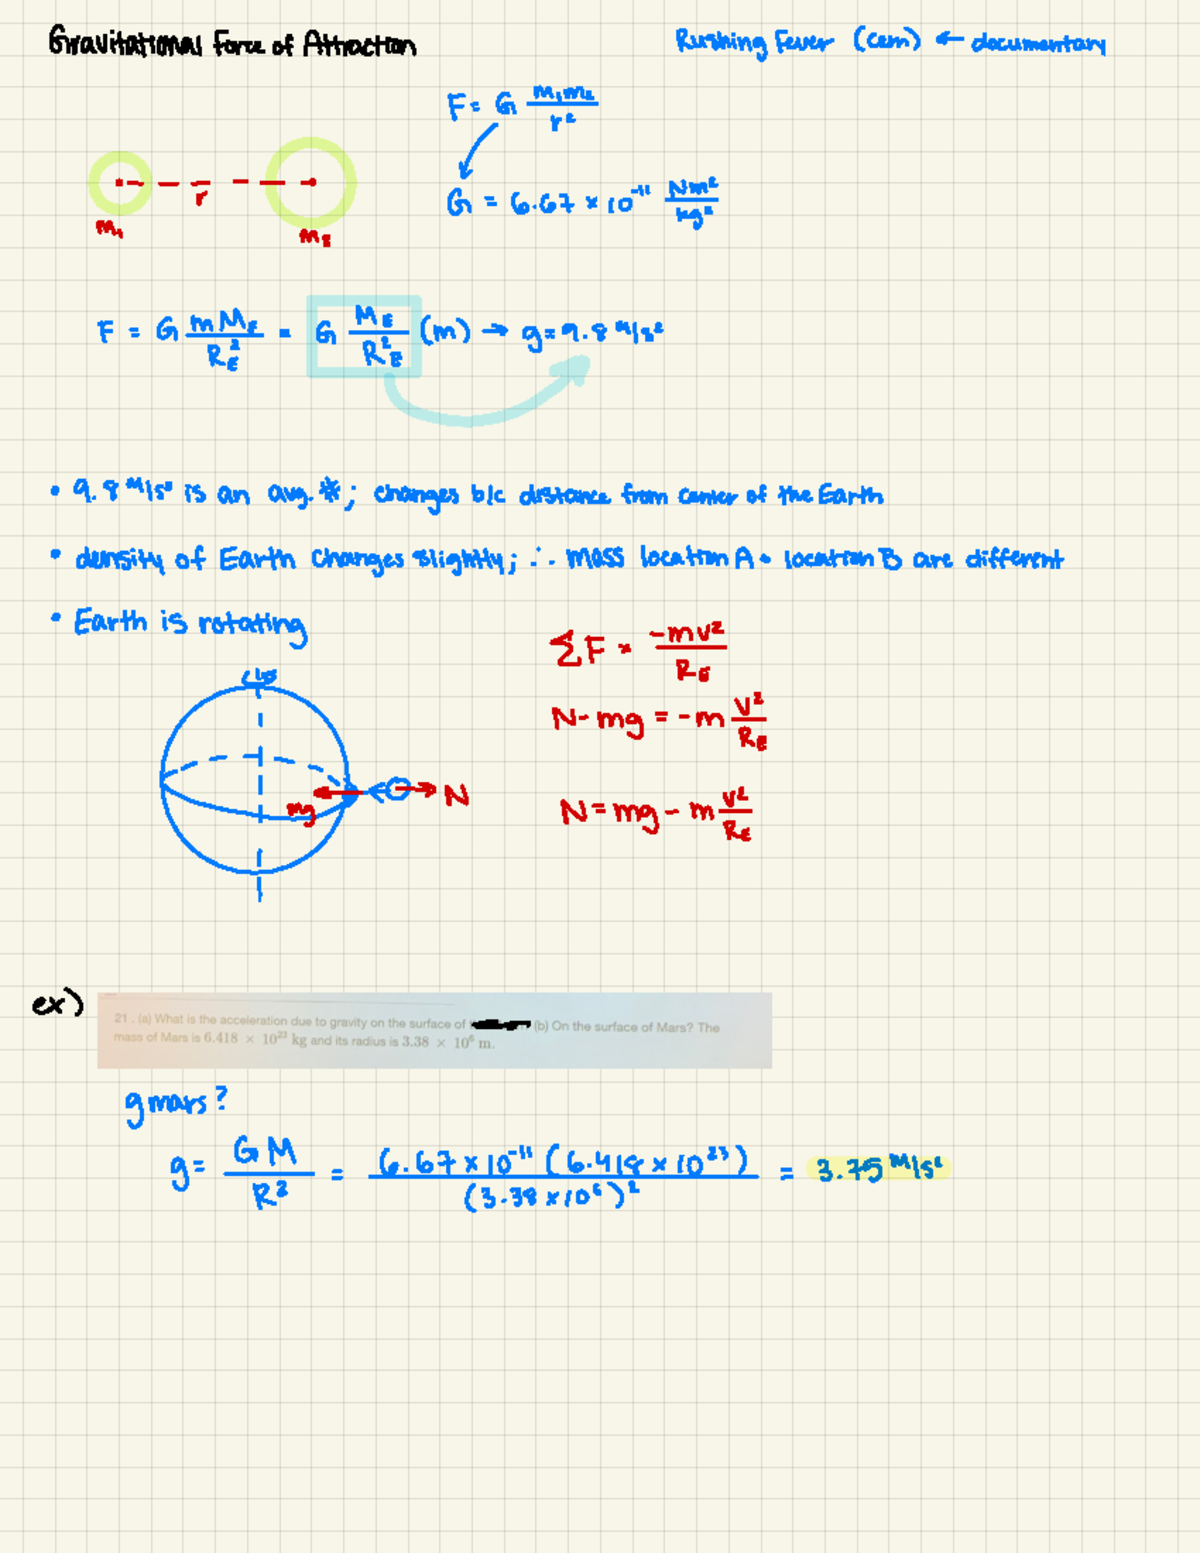 Gravitational Force of Attraction
Rushing Fever (cem) ← documentary
F = G m₁m₂ / r²
G = 6.67 × 10⁻¹¹ Nm² / kg²
r
m₁
m₂
F = G mM_E / R_E² = G M_E / R²_E (m) → g = 9.8 m/s²
• 9.8 m/s² is an avg. #; changes b/c distance from center of the Earth
• density of Earth changes slightly; ∴ mass location A & location B are different
• Earth is rotating
ΣF = -mv² / R_E
N - mg = -m v² / R_E
mg
N
N = mg - m v² / R_E
ex)
21 . (a) What is the acceleration due to gravity on the surface of (b) On the surface of Mars? The
mass of Mars is 6.418 × 10²³ kg and its radius is 3.38 × 10⁶ m.
g mars?
g = GM / R² = 6.67 × 10⁻¹¹ (6.418 × 10²³) / (3.38 × 10⁶)² = 3.75 m/s²